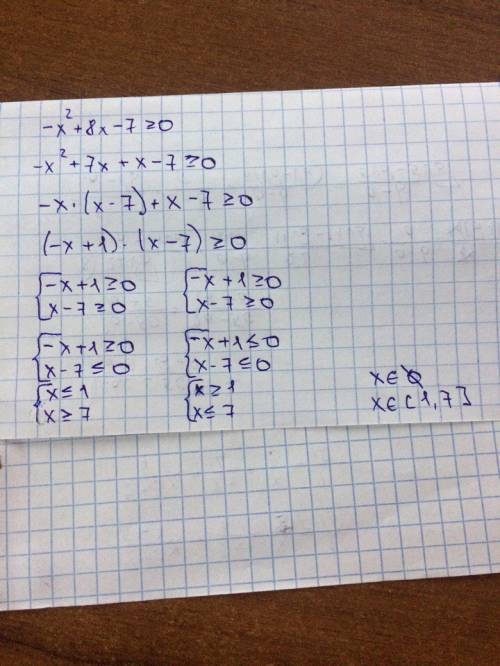 -x²+8x-7≥0
-x²+7x+x-7≥0
-x·(x-7)+x-7≥0
(-x+1)·(x-7)≥0
{-x+1≥0 {-x+1≥0
x-7≥0 x-7≥0
{-x+1≥0 {-x+1≤0
x-7≤0 x-7≤0
{x≤1 {x≥1 x∈∅
x≥7 x≤7 x∈[1,7]